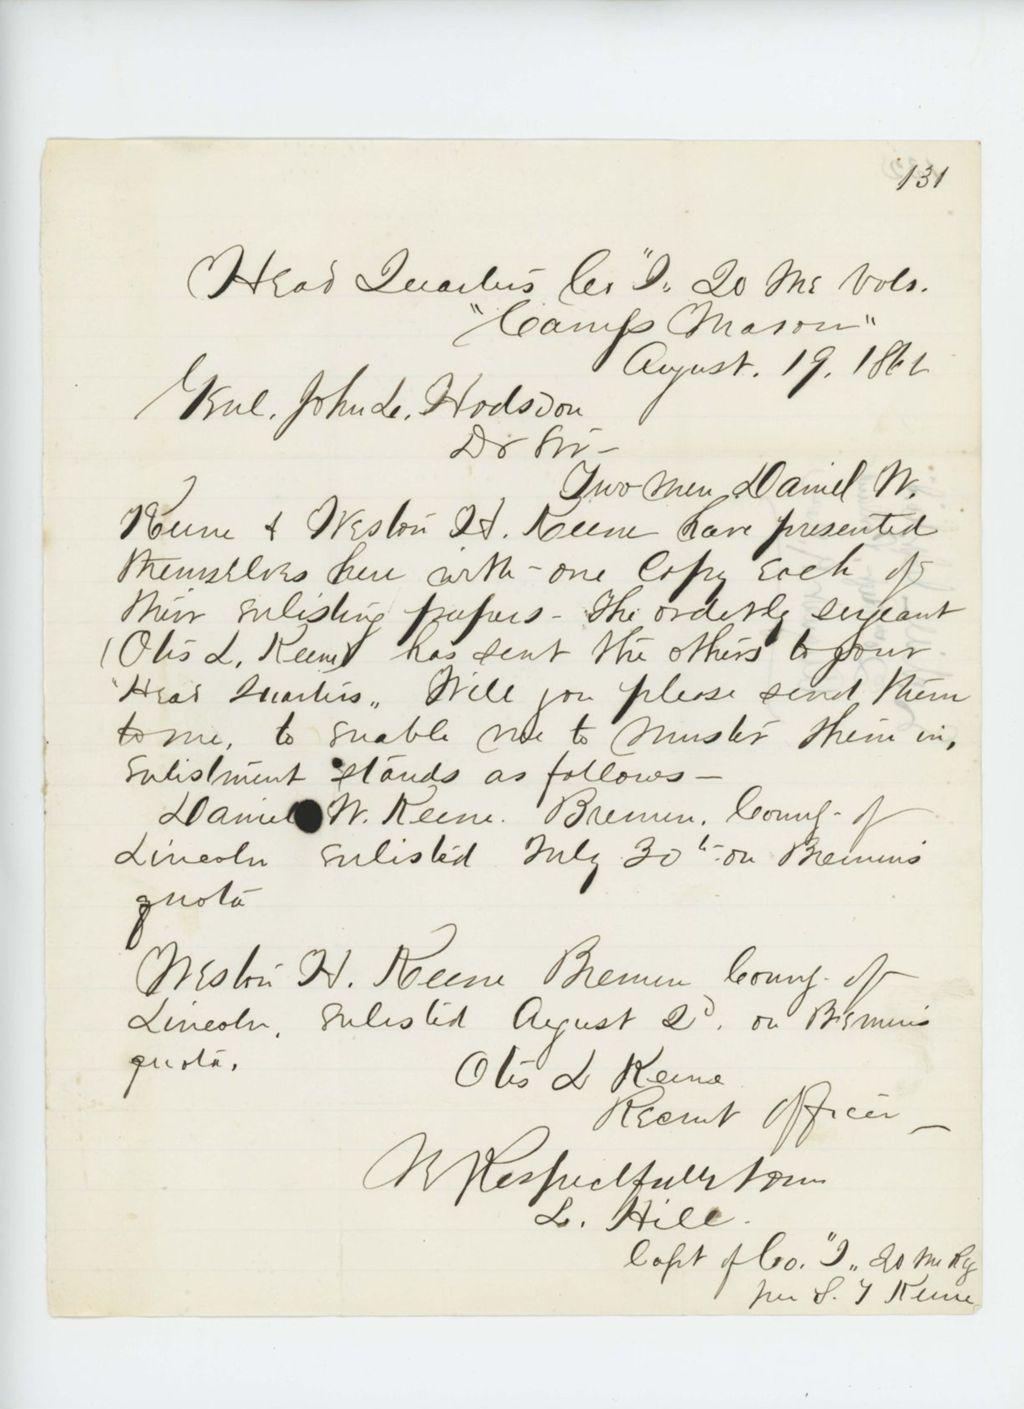 131
Head Quarters Co "I" 20 Me Vols.
"Camp Mason"
August. 19. 1862
Genl. John L. Hodsdon
Dr Sir -
Two men Daniel W.
Keene & Weston H. Keene have presented
themselves here with - one Copy each of
their enlisting papers - The orderly sergeant
(Otis L. Keene) has sent the others to your
"Head Quarters" Will you please send them
to me, to enable me to muster them in,
Enlistment stands as follows -
Daniel W. Keene. Bremen. County - of
Lincoln enlisted July 30th - on Bremens
quota
Weston H. Keene Bremen County - of
Lincoln, enlisted August 2d. on Bremens
quota.
Otis L Keene
Recruit Officer -
V Respectfully yours
L. Hill.
Capt of Co. "I" 20 Me Rg
per S. T Keene